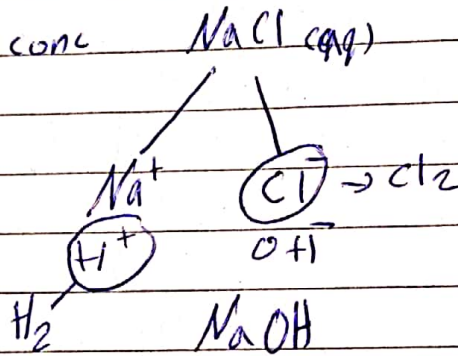 conc NaCl (aq)
Na⁺ Cl⁻ → Cl₂
H⁺ OH⁻
H₂ NaOH